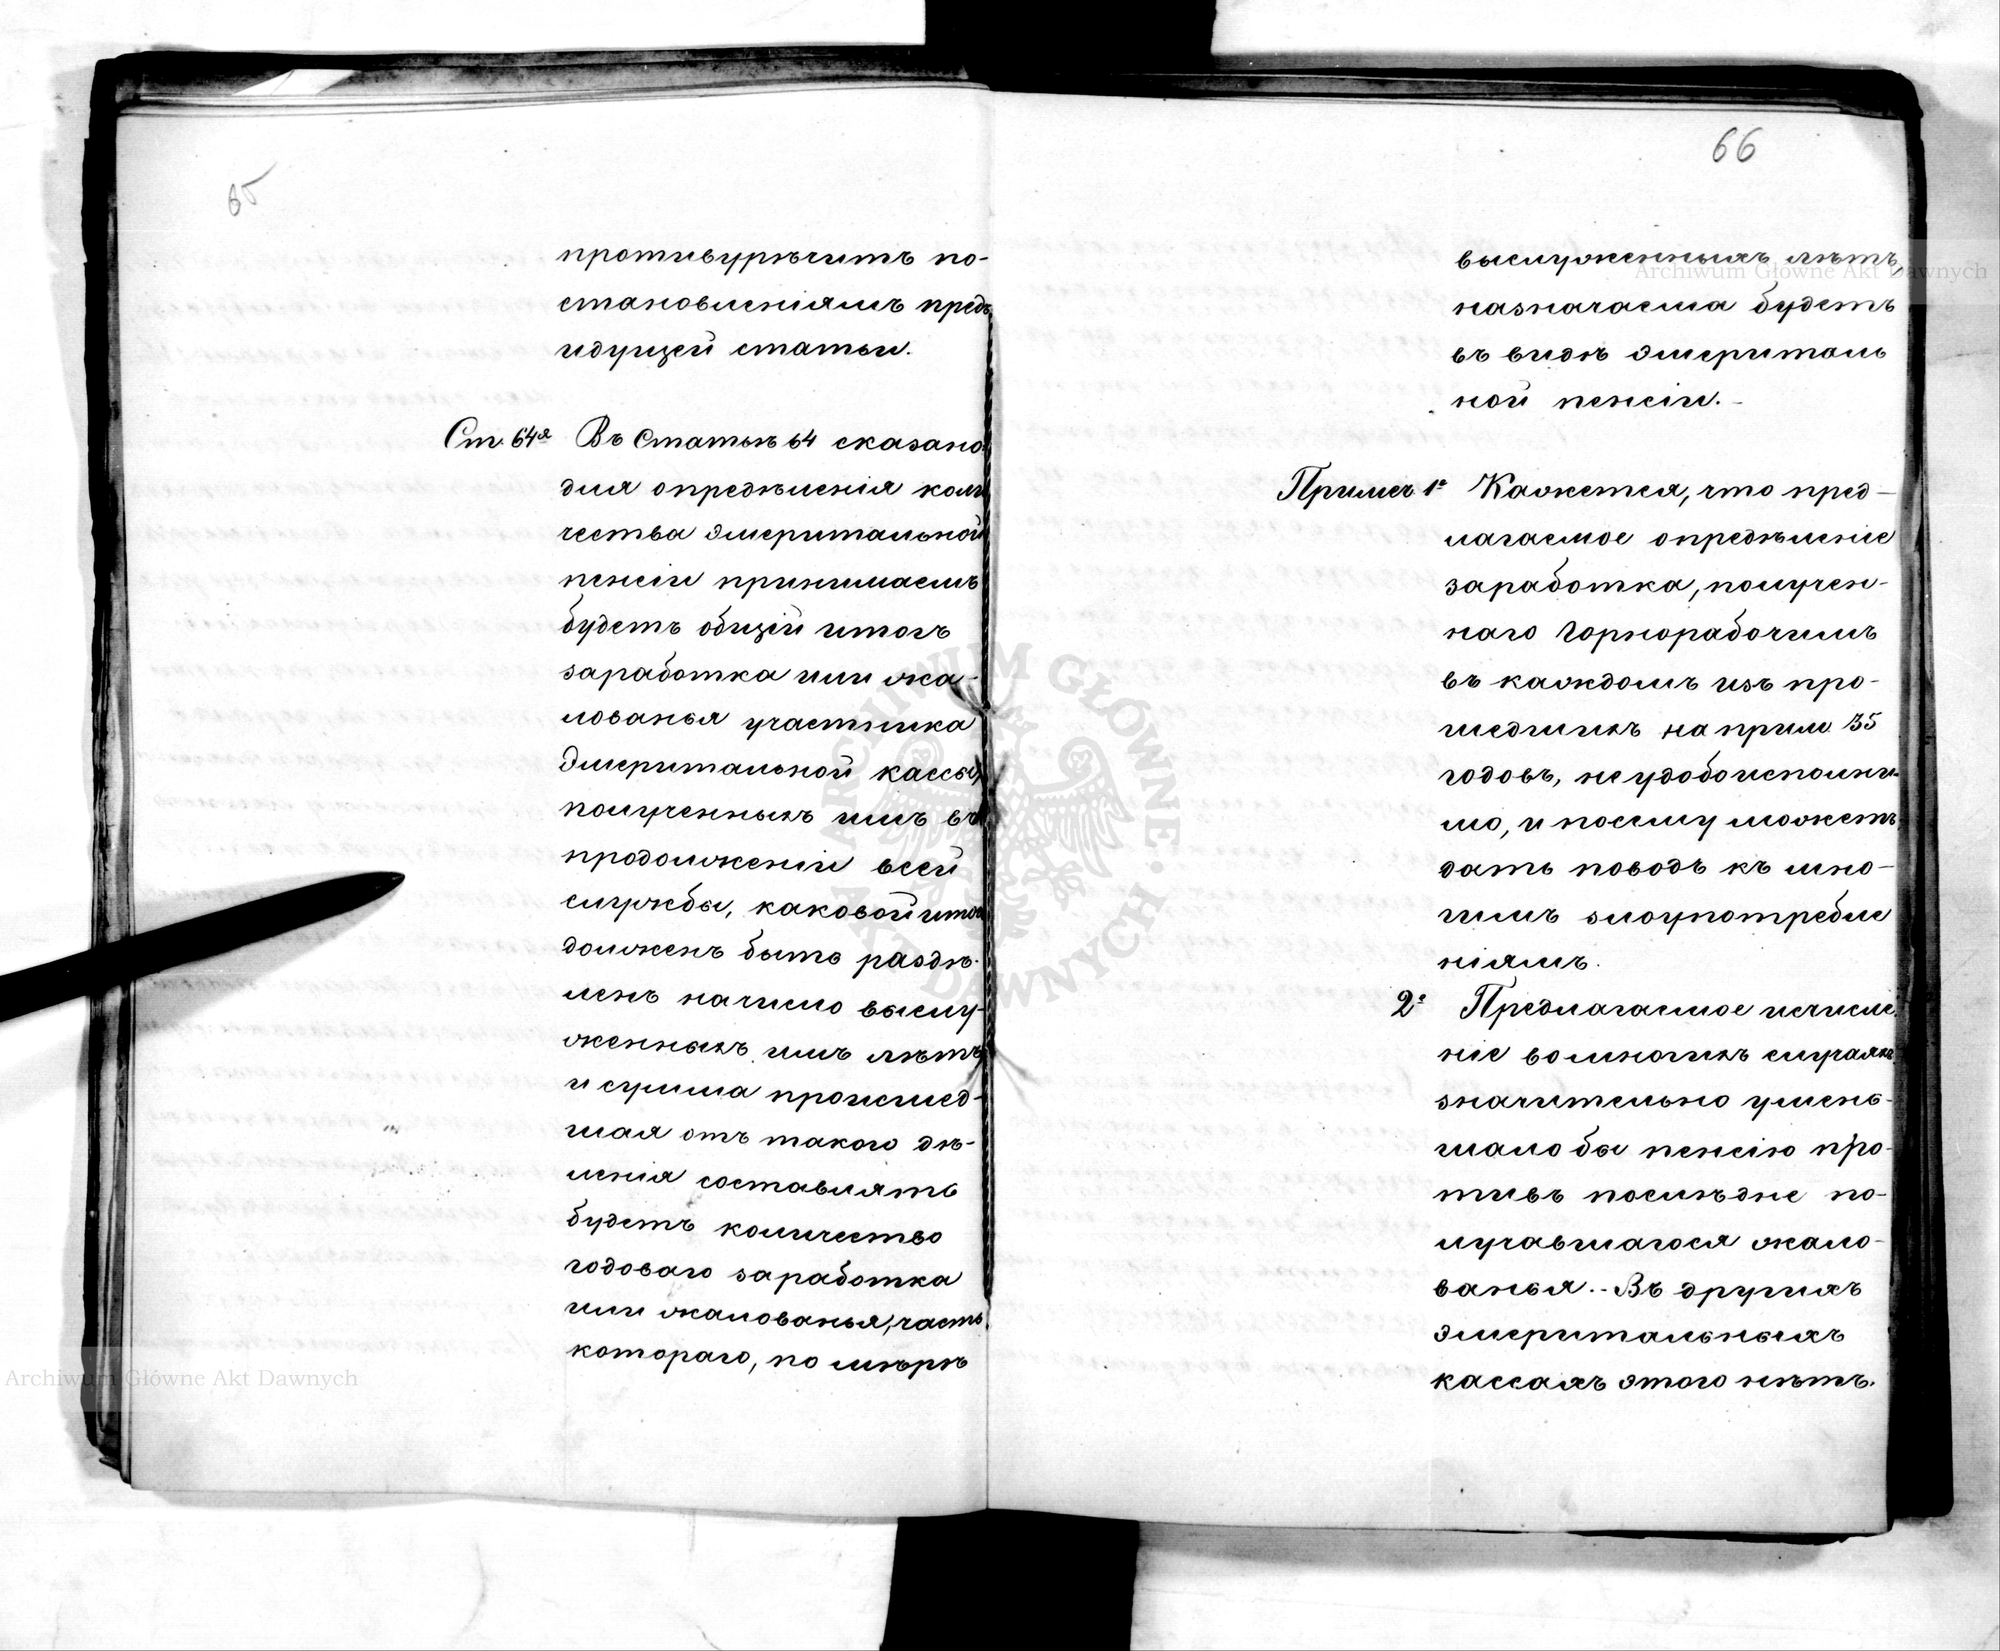 65
противурѣчитъ по-
становленіямъ предъ
идущей статьи.
Ст. 64я Въ Статьѣ 64 сказано:
для опредѣленія коли
чества эмеритальной
пенсіи принимаемъ
будетъ общій итогъ
заработка или жа-
лованья участника
эмеритальной кассы,
полученныхъ имъ въ
продолженіи всей
службы, каковой итогъ
долженъ быть раздѣ-
ленъ на число выслу-
женныхъ имъ лѣтъ
и сумма происшед-
шая отъ такого дѣ-
ленія составлять
будетъ количество
годоваго заработка
или жалованья, часть
котораго, по мѣрѣ
66
выслуженныхъ лѣтъ,
назначаема будетъ
въ видѣ эмериталь
ной пенсіи.-
Примеч 1е Кажется, что пред-
лагаемое опредѣленіе
заработка, получен-
наго Горнорабочимъ
въ каждомъ изъ про-
шедшихъ на прим. 35
годовъ, не удобоисполни-
мо, и посему можетъ
дать поводъ къ мно-
гимъ злоупотребле
ніямъ.
2е Предлагаемое исчисле-
ніе во многихъ случаяхъ
значительно умень-
шало бы пенсію про-
тивъ послѣдне по-
лучавшагося жало-
ванья.- Въ другихъ
эмеритальныхъ
кассахъ этого нѣтъ.
Archiwum Główne Akt Dawnych
ARCHIWUM GŁÓWNE AKT DAWNYCH
Archiwum Główne Akt Dawnych